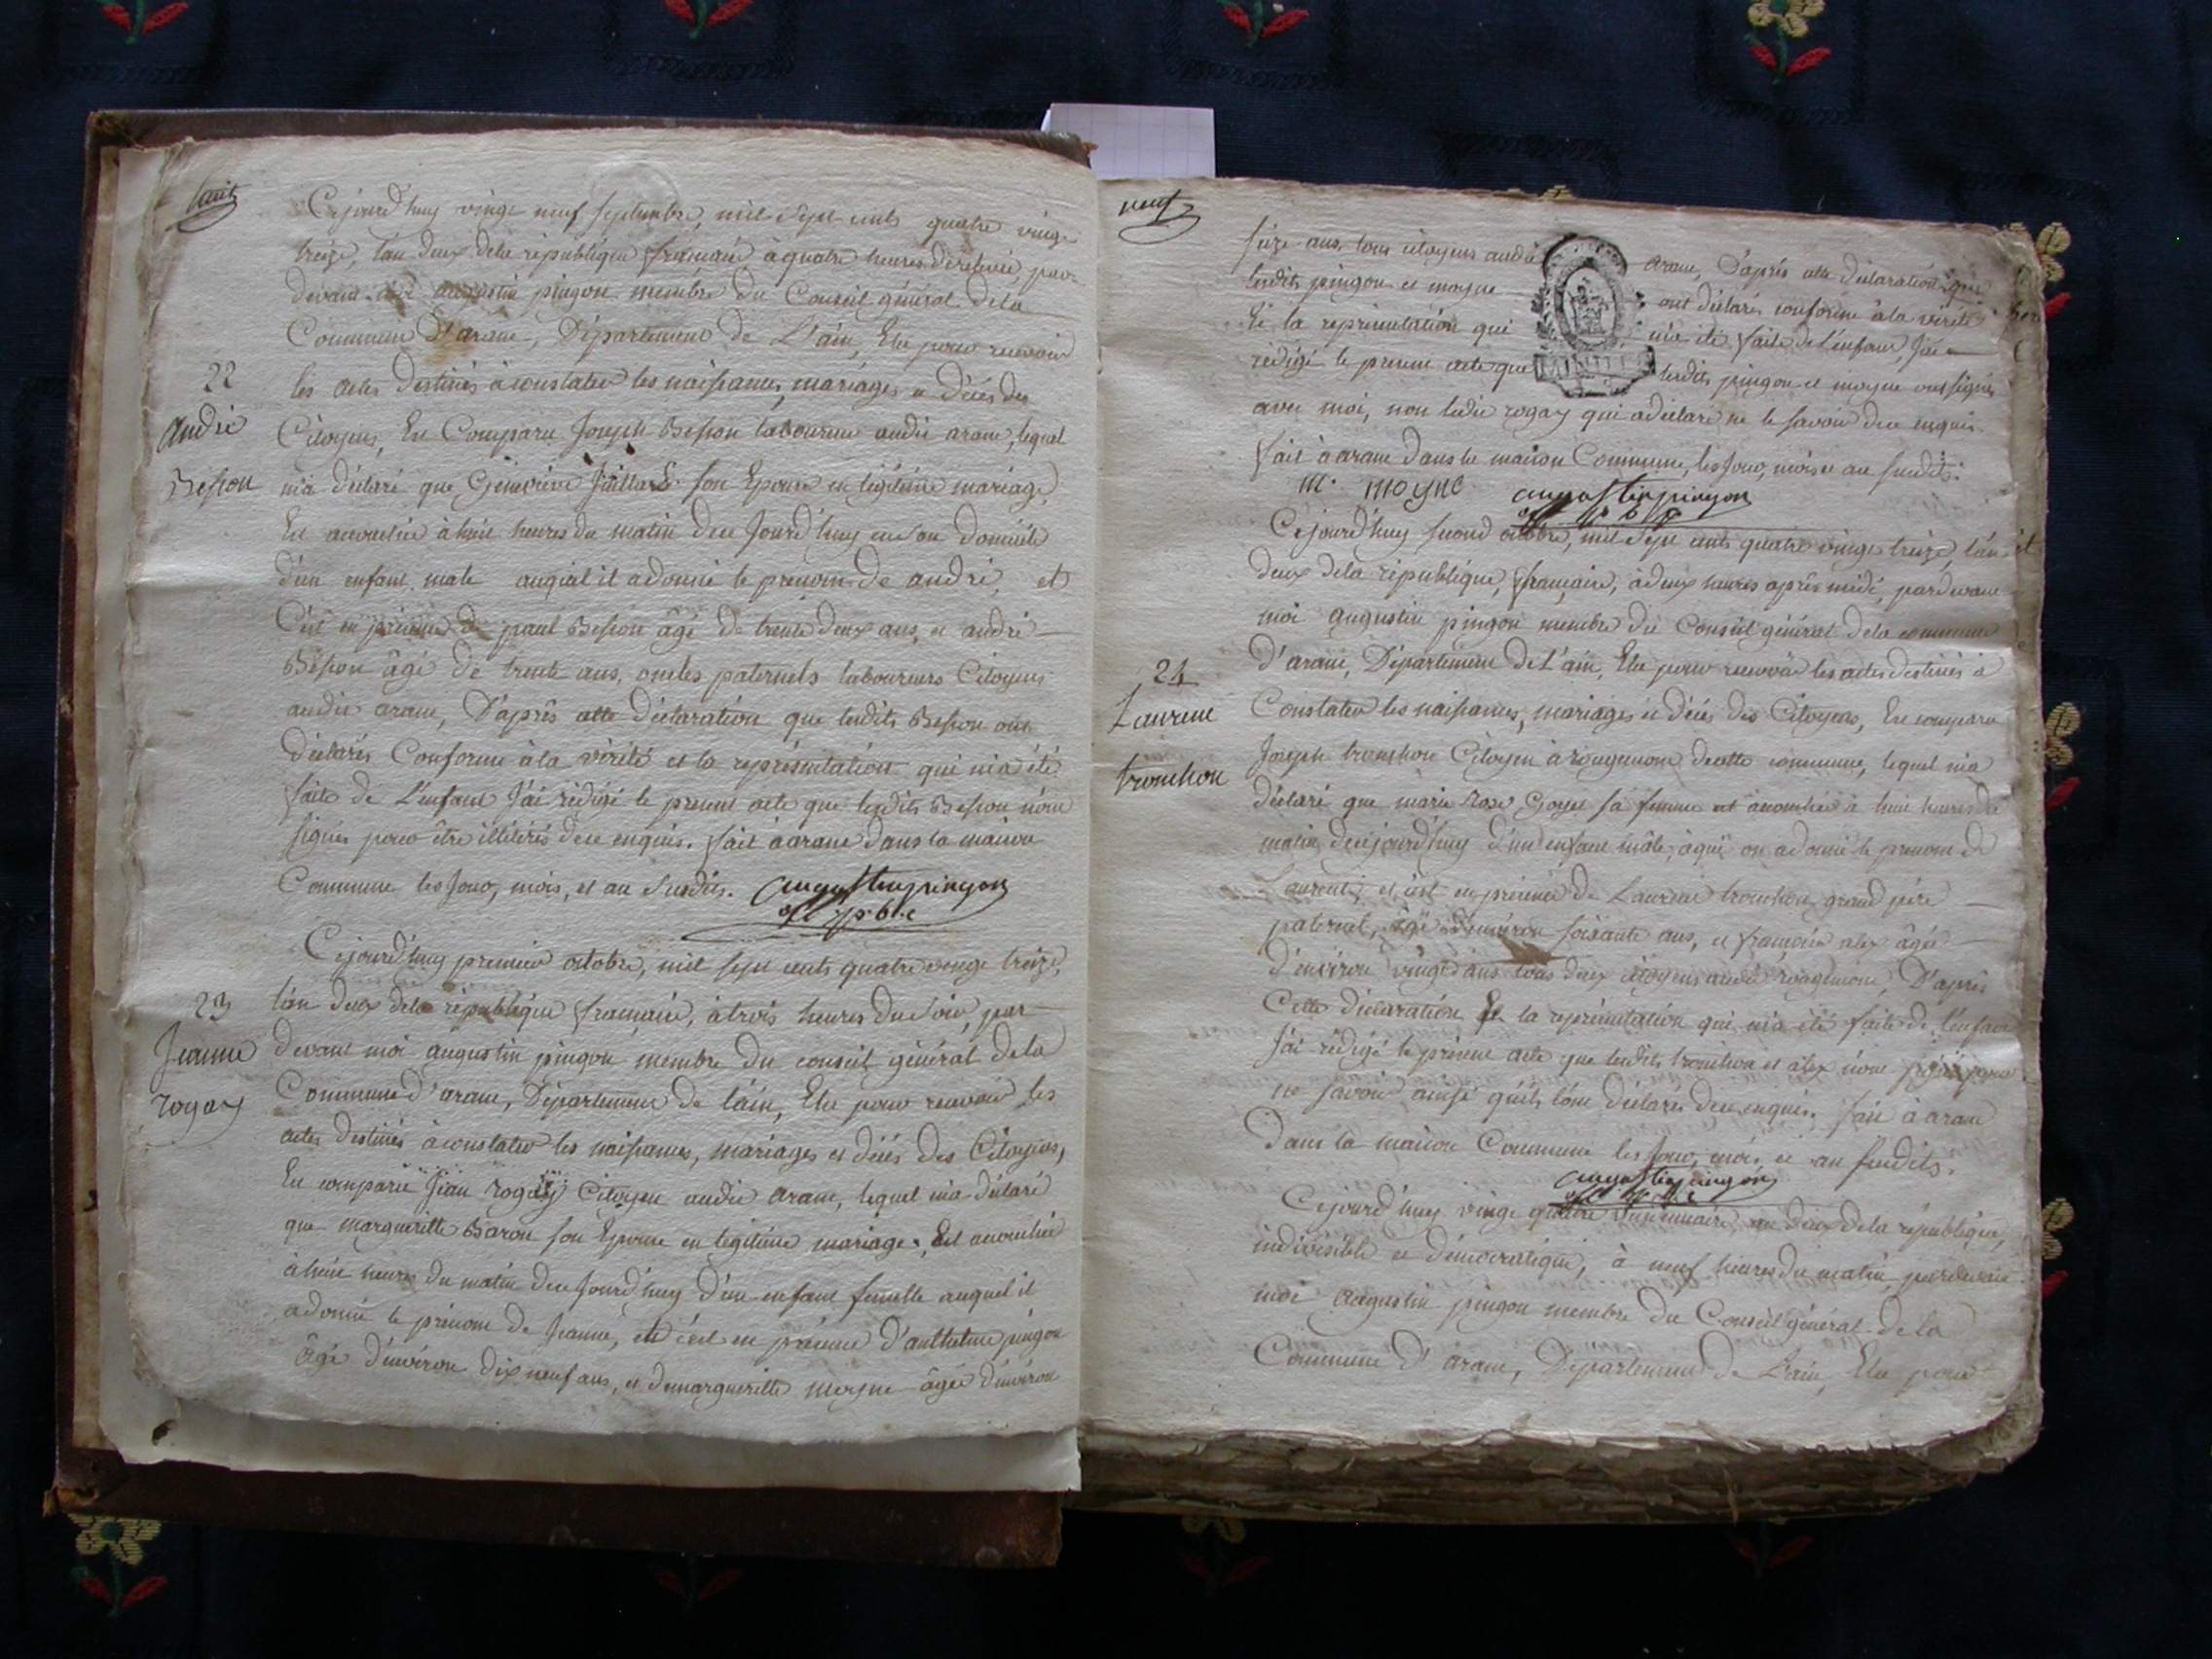 huit
Cejourd'huy vingt neuf septembre, mil sept cents quatre vingt
treize, l'an deux dela république française à quatre heures de relevée, par
devant moi augustin pingon membre du Conseil général dela
Commune d'arane, Département de L'ain, Elu pour recevoir
22
les actes destinés à constater les naissances, mariages et décés des
André
Citoyens, Est Comparu Joseph Besson laboureur audit arane, lequel
Besson
m'a déclaré que Genevieve Juillard son Epouse en légitime mariage,
Est accouchée à huit heures du matin de ce Jourd'huy en son domicile
d'un enfant male auquel il a donné le prenom de andré, et
C'est en présence de paul Besson âgé de trente deux ans, et andré
Besson âgé de trente ans, oncles paternels laboureurs Citoyens
audit arane, D'après cette déclaration que lesdits Besson ont
déclarés Conforme à la vérité et la représentation qui m'a été
faite de L'enfant J'ai rédigé le present acte que lesdits Besson n'ont
signés pour être illitérés de ce enquis. fait à arane dans la maison
Commune les Jour, mois, et an susdits. augustin pingon
off. pblc
Cejourd'huy premier octobre, mil sept cents quatre vingt treize,
23
l'an deux dela république française, à trois heures du soir, par
Jeanne
devant moi augustin pingon membre du conseil général dela
rogay
Commune d'arane, Département de l'ain, Elu pour recevoir les
actes destinés à constater les naissances, mariages et décés des Citoyens,
Est comparu Jean rogay Citoyen audit arane, lequel m'a déclaré
que margueritte Baron son Epouse en légitime mariage, Est accouchée
à huit heures du matin de ce Jourd'huy d'un enfant femelle auquel il
a donné le prénom de Jeanne, et c'est en présence d'anthelme pingon
âgé d'environ dix neuf ans, et de margueritte moyne âgée d'environ
neuf
seize ans, tous citoyens audit arane, D'après cette déclaration que
lesdits pingon et moyne ont déclarés conforme à la vérité
Et la représentation qui m'a été faite de l'enfant, J'ai
rédigé le present acte que lesdits pingon et moyne ont signés
avec moi, non ledit rogay qui a déclaré ne le savoir de ce enquis.
fait à arane dans la maison Commune, les Jour, mois et an susdits.
m. moyne augustin pingon
off. pblc
Cejourd'huy second octobre, mil sept cents quatre vingt treize, l'an
deux dela république, française, à deux heures après midi, pardevant
moi augustin pingon membre du Conseil général dela commune
24
d'arane, Département de L'ain, Elu pour recevoir les actes destinés à
Laurent
Constater les naissances, mariages et décés des Citoyens, Est comparu
tronchon
Joseph tronchon Citoyen à rougemont de cette commune, lequel m'a
déclaré que marie rose Goyet sa femme est accouchée à huit heures du
matin de cejourd'huy d'un enfant mâle, à qui on a donné le prenom de
Laurent, et c'est en présence de Laurent tronchon grand père
paternel, âgé d'environ soixante ans, et françoise alex âgée
d'environ vingt ans tous deux citoyens audit rougemont, D'après
Cette déclaration Et la représentation qui m'a été faite de l'enfant
J'ai rédigé le présent acte que lesdits tronchon et alex n'ont signé pour
ne savoir ainsi qu'ils l'ont déclarés de ce enquis. fait à arane
Dans la maison Commune les Jour, mois et an susdits.
augustin pingon
off. pblc
Cejourd'huy vingt quatre an deux dela république,
indivisible et démocratique, à neuf heures du matin, pardevant
moi augustin pingon membre du Conseil général de la
Commune d'arane, Département de L'ain, Elu pour